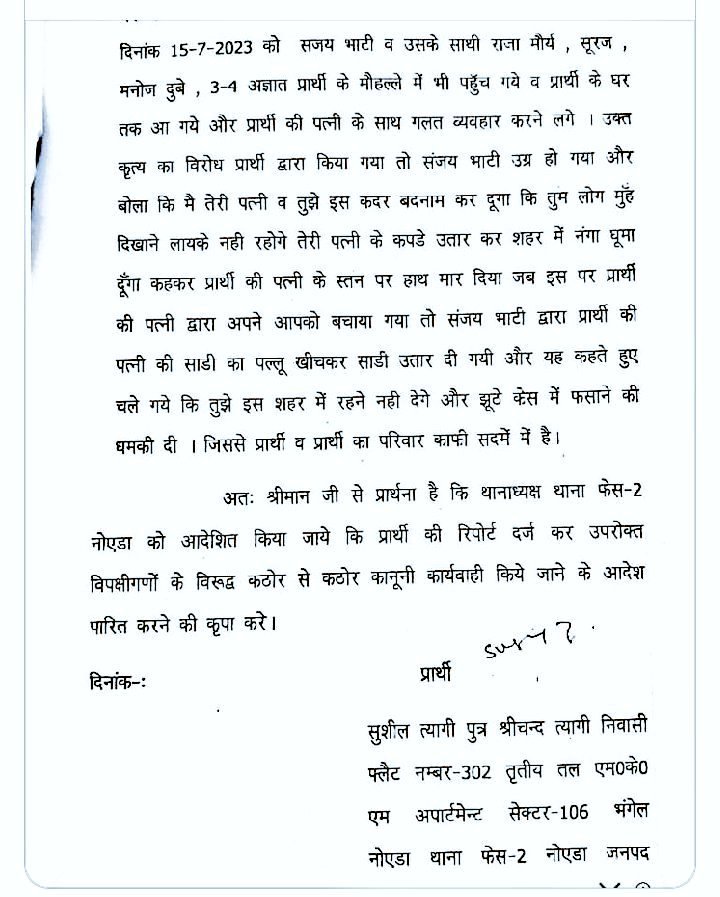 दिनांक 15-7-2023 को सजय भाटी व उसके साथी राजा मौर्य , सूरज ,
मनोज दुबे , 3-4 अज्ञात प्रार्थी के मौहल्ले में भी पहुँच गये व प्रार्थी के घर
तक आ गये और प्रार्थी की पत्नी के साथ गलत व्यवहार करने लगे । उक्त
कृत्य का विरोध प्रार्थी द्वारा किया गया तो संजय भाटी उग्र हो गया और
बोला कि मै तेरी पत्नी व तुझे इस कदर बदनाम कर दूगा कि तुम लोग मुँह
दिखाने लायके नही रहोगे तेरी पत्नी के कपडे उतार कर शहर में नंगा घूमा
दूँगा कहकर प्रार्थी की पत्नी के स्तन पर हाथ मार दिया जब इस पर प्रार्थी
की पत्नी द्वारा अपने आपको बचाया गया तो संजय भाटी द्वारा प्रार्थी की
पत्नी की साडी का पल्लू खीचकर साडी उतार दी गयी और यह कहते हुए
चले गये कि तुझे इस शहर में रहने नही देगे और झूटे केस में फसाने की
धमकी दी । जिससे प्रार्थी व प्रार्थी का परिवार काफी सदमें में है।
अतः श्रीमान जी से प्रार्थना है कि थानाध्यक्ष थाना फेस-2
नोएडा को आदेशित किया जाये कि प्रार्थी की रिपोर्ट दर्ज कर उपरोक्त
विपक्षीगणों के विरूद्व कठोर से कठोर कानूनी कार्यवाही किये जाने के आदेश
पारित करने की कृपा करे।
दिनांक-:
प्रार्थी
सुशील त्यागी पुत्र श्रीचन्द त्यागी निवासी
फ्लैट नम्बर-302 तृतीय तल एम0के0
एम अपार्टमेन्ट सेक्टर-106 भंगेल
नोएडा थाना फेस-2 नोएडा जनपद